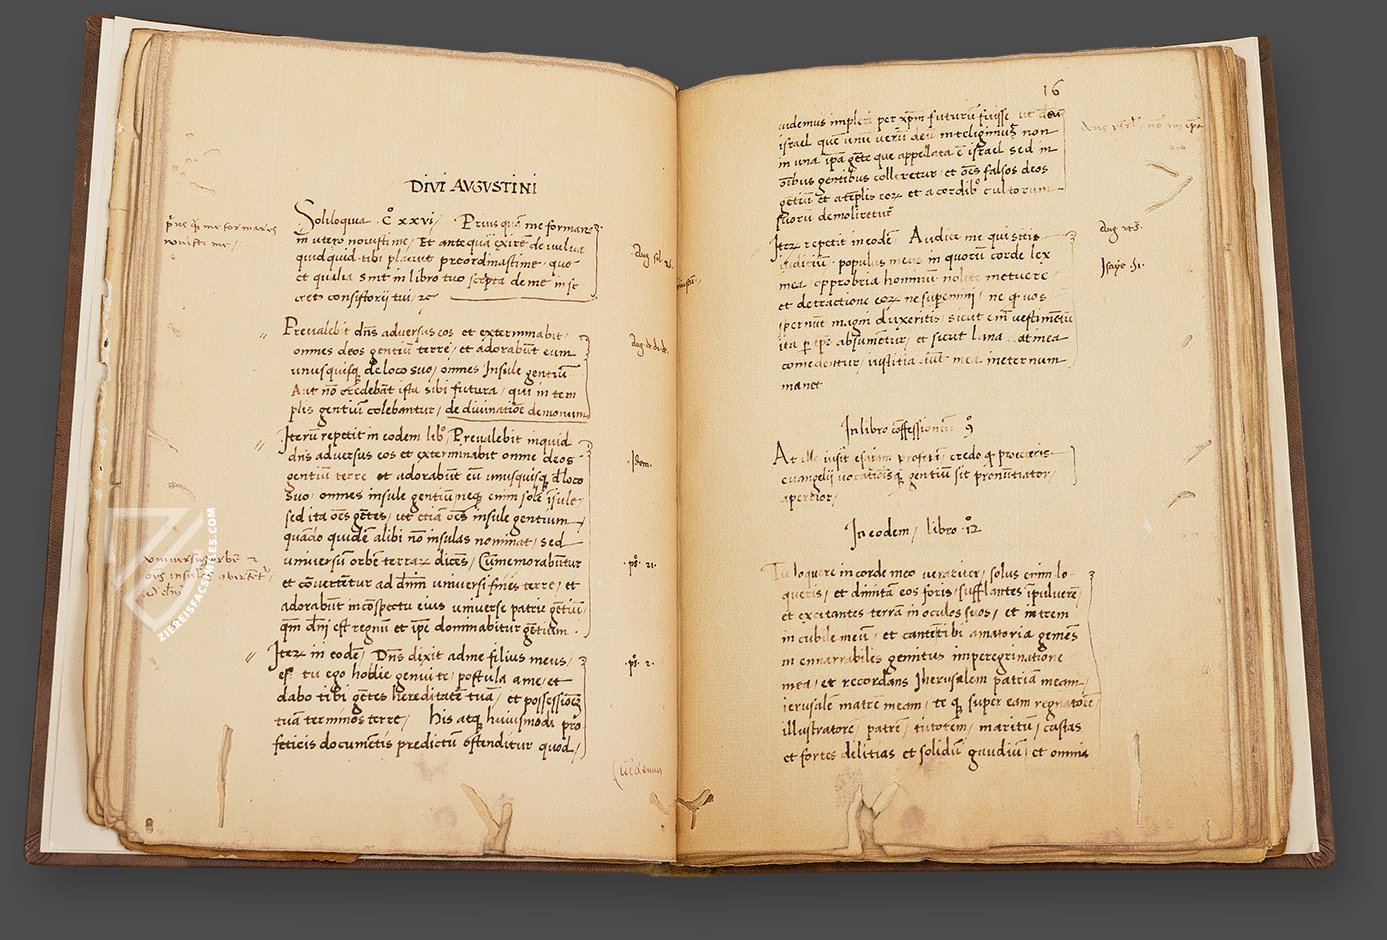 DIVI AVGVSTINI
Soliloquia · Cº xxvi / Prius quā me formares
in utero novisti me / Et antequā exirē de vulva
quidquid tibi placuit preordinastime · que
et qualia sint in libro tuo scripta de me in se
creto consistorij tui / ⁊c
Prevalebit dn̄s adversus eos et exterminabit ·
omnes deos gentiū terre / et adorabūt eum
unusquisqꝫ de loco suo / omnes Insule gentiū
Aut nō credebāt ista sibi futura / qui in tem
plis gentiū colebantur / de divinatiōe demonum
Iterū repetit in eodem libº / Prevalebit inquid
dn̄s adversus eos et exterminabit omne deos
gentiū terre et adorabūt eū unusquisqꝫ d̄ loco
suo · omnes insule gentiū neqꝫ enim sole īsule ·
sed ita oēs gētes / ut etiā oēs insule gentium
quādo quidē alibi nō insulas nominat / sed
universū orbē terraꝝ dicēs / Cūmemorabūtur
et cōvertētur ad dn̄m universi fines terre / et
adorabūt incōspectu eius universe patrie gētiū /
qm̄ dn̄i est regnū et ip̄e dominabitur gētium ·
Iteꝝ in eodē / Dn̄s dixit ad me filius meus /
es tu ego hodie genui te / postula a me / et
dabo tibi gētes hereditatē tuā / et possessionē
tuā terminos terre / his atqꝫ huiusmodi pro
feticis documētis predictū ostenditur quod /
p̄us q̄ me formares
novisti me /
universū orbē ⁊
oēs insule
Aug sol
Aug de di. de.
· Idem ·
· pº · 21 ·
· pº · 2 ·
videmus
16
videmus impleri per xp̄m futurū fuisse ut deū
israel quē unū verū deū intelligimus non
in una ip̄a gēte que appellata ē israel sed in
oībus gentibus colleretur · et oēs falsos deos
gētiū et a tēplis eoꝝ et a cordibº cultorum
suorū demoliretur
Iteꝝ repetit in eodē Audite me qui scitis
iuditiū · populus meus in quorū corde lex
mea opprobria hominū nolite metuere ·
et detractione eoꝝ ne superemini / ne q vos
spernūt magni duxeritis / sicut em̄ vestimētū
ita p absumētur / et sicut lana a tinea
comedentur / iustitia aūt mea ineternum /
manet
Aug
Isaye · 51 ·
In libro cōffessionū · 9
At ille iusit esaiam profetā / credo q pro ceteris
evangelii vocationisqꝫ gentiū sit pronūtiator /
apertior /
In eodem / libro · 12
Tu loquere in corde meo veraciter / solus enim lo ·
queris / et dimitā eos foris / sufflantes īpulverē
et excitantes terrā in oculos suos / et intrem
in cubile meū / et cantē tibi amatoria gemēs
in ennarrabiles gemitus imperegrinatione
mea / et recordans Iherusalem patriā meam /
ierusalē matrē meam / te qꝫ super eam regnatorē /
illustratorē / patrē / tutorem / maritū / castas
et fortes delitias et solidū gaudiū / et omnia
ZIEREISFACSIMILES.COM